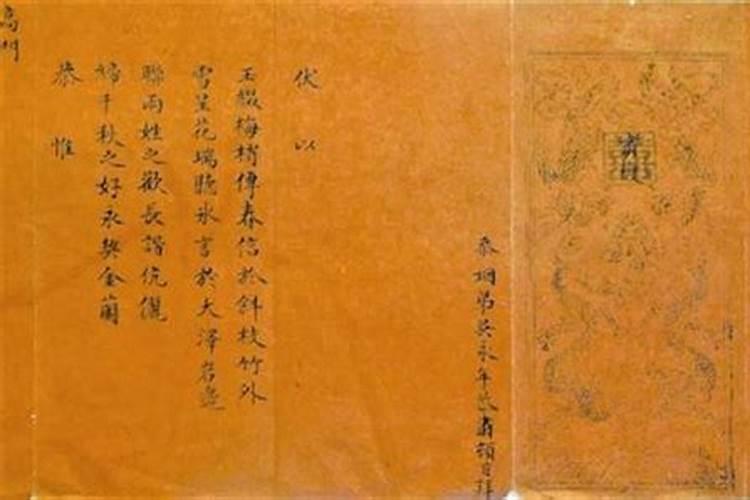 忝姻弟吳永年 肅頓首拜
伏以
玉綴梅梢傳春信於斜枝竹外
雪呈花瑞聽氷言於大澤岩邊
聯兩姓之歡長諧伉儷
締千秋之好永契金蘭
恭惟
高門